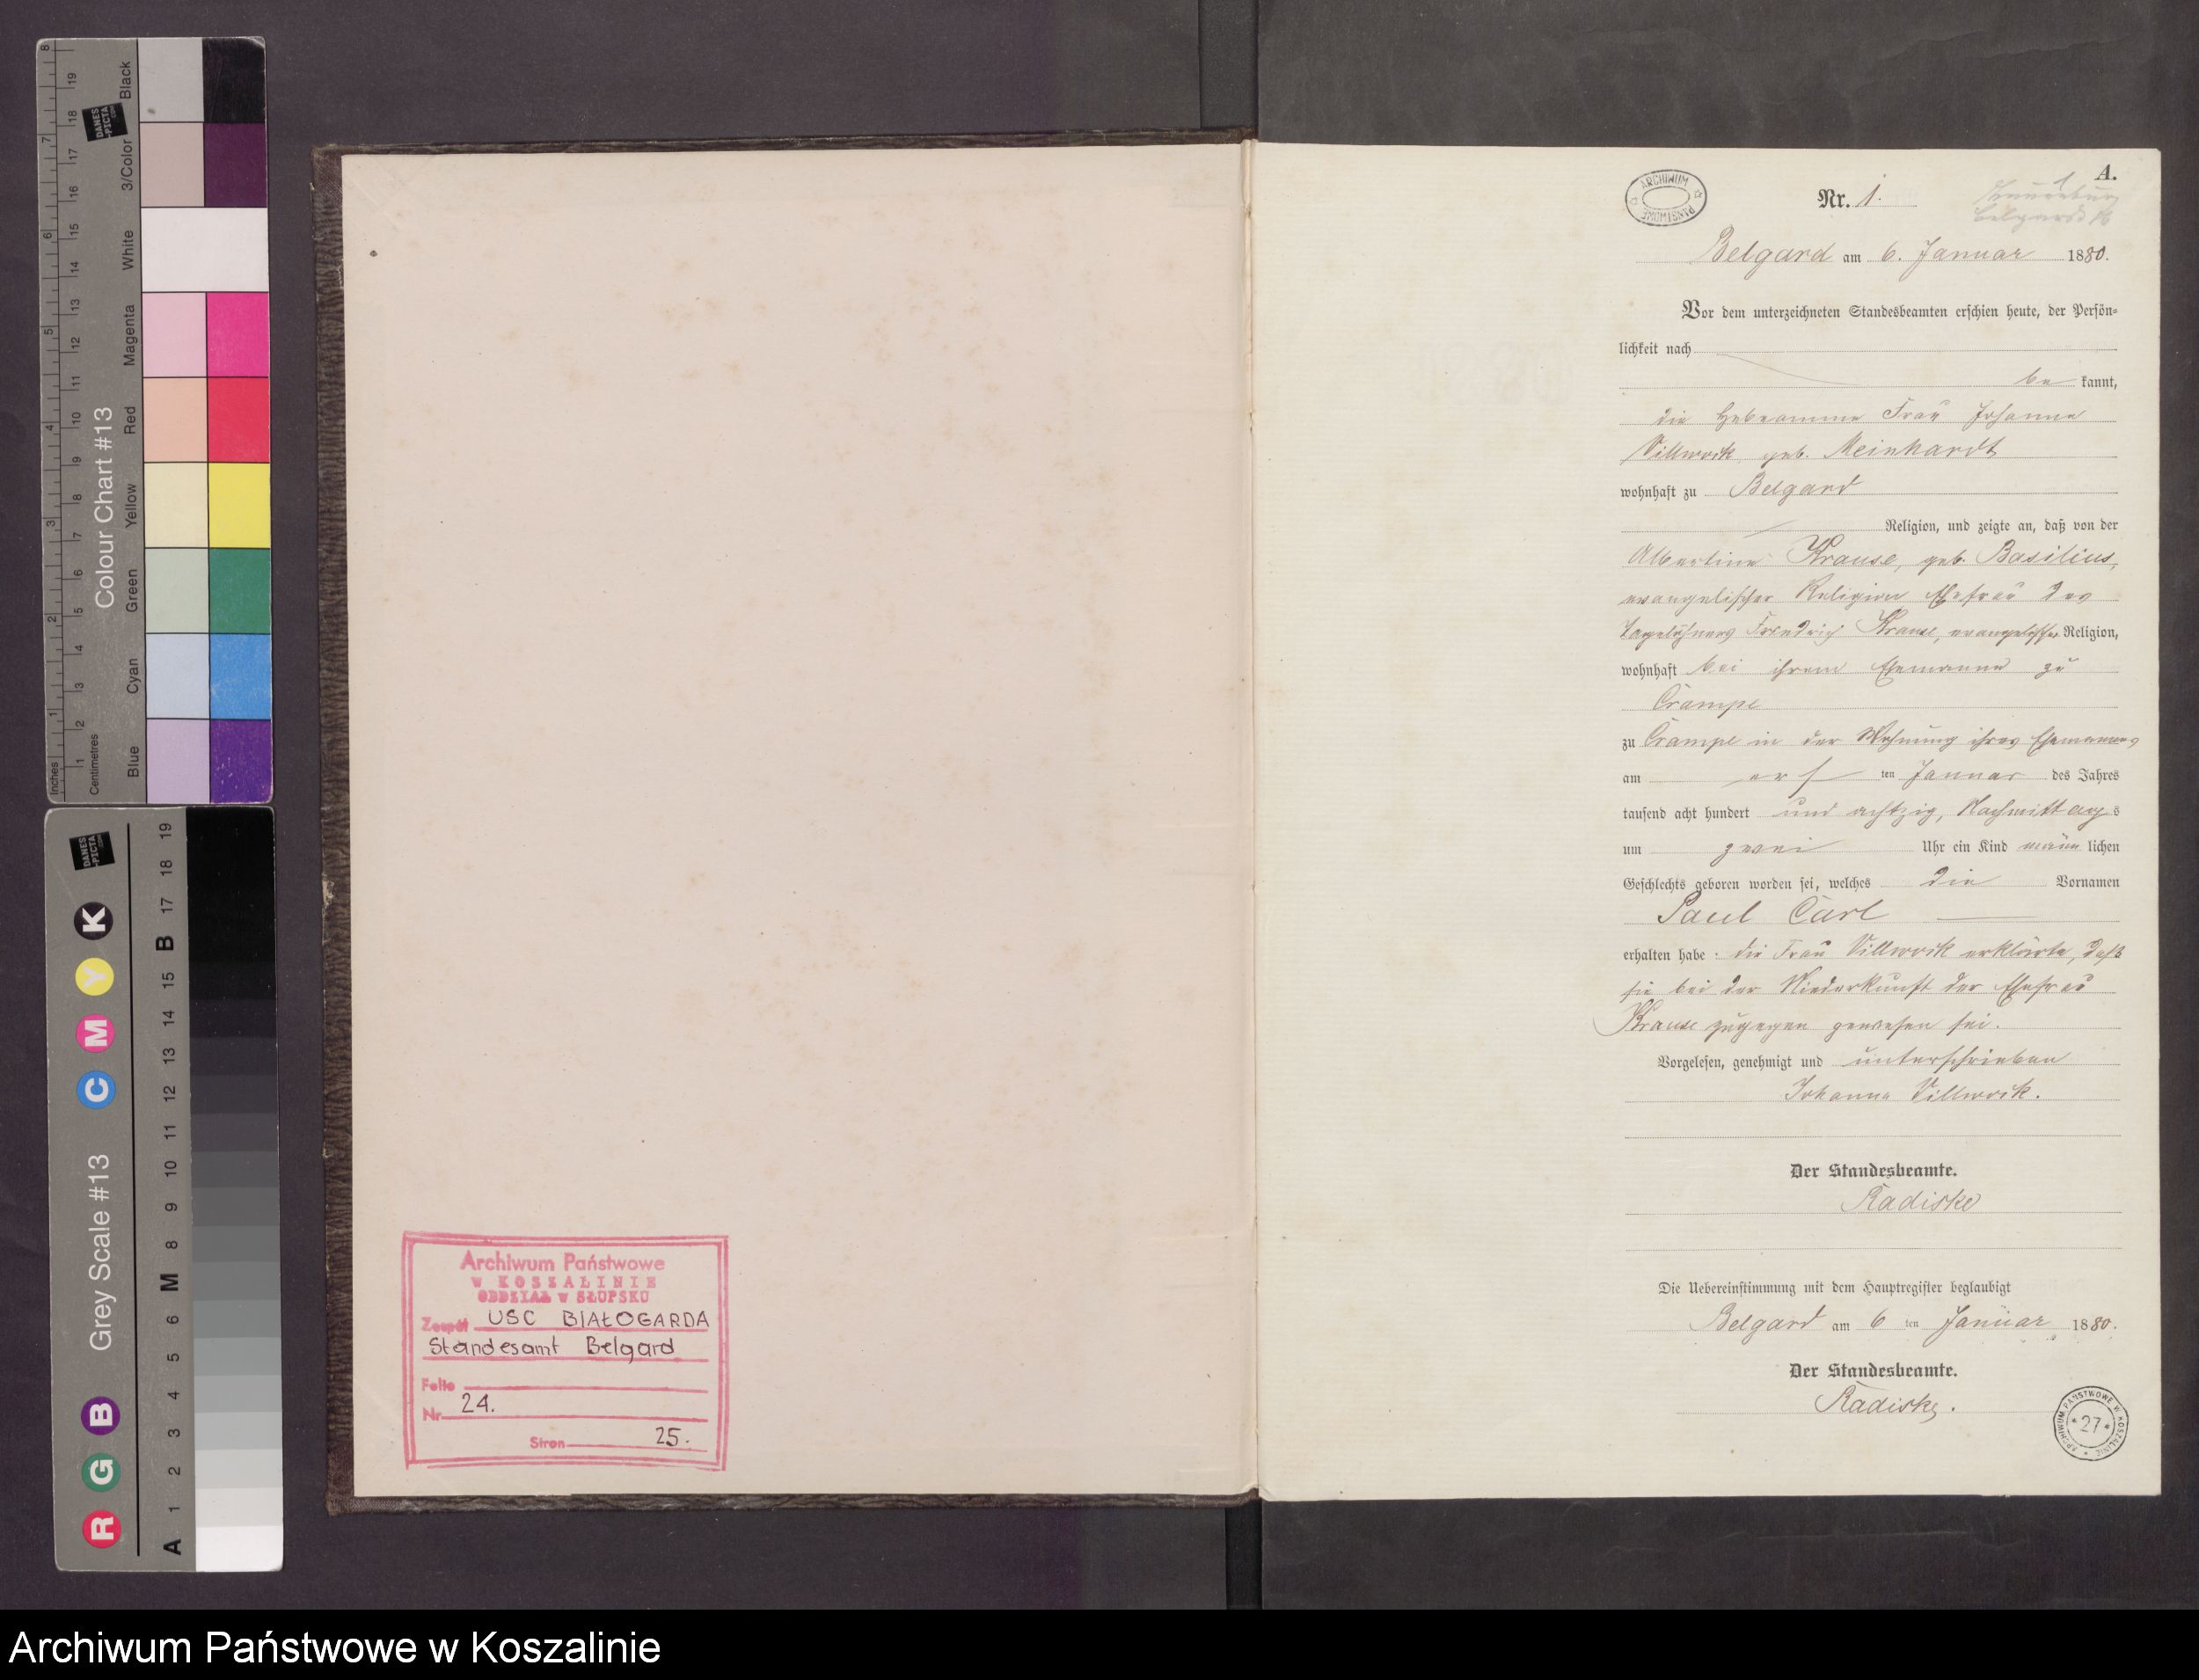 8
7
6
5
4
3
2
1
Inches
19
18
17
16
15
14
13
12
11
10
9
8
7
6
5
4
3
2
1
Centimetres
DANES
-PICTA
.COM
Colour Chart #13
Black
3/Color
White
Magenta
Red
Yellow
Green
Cyan
Blue
DANES
-PICTA
.COM
Grey Scale #13
R G B C M Y K
A 1 2 3 4 5 6 M 8 9 10 11 12 13 14 15 B 17 18 19
Archiwum Państwowe
w KOSZALINIE
ODDZIAŁ w SŁUPSKU
Zespół USC BIAŁOGARDA
Standesamt Belgard
Folio
Nr. 24.
Stron 25.
ARCHIWUM
PAŃSTWOWE
A.
1
Nr. 1.
Belgard am 6. Januar 1880.
Vor dem unterzeichneten Standesbeamten erschien heute, der Persön-
lichkeit nach
be kannt,
die Hebeamme Frau Johanne
Villwock geb. Meinhardt
wohnhaft zu Belgard
Religion, und zeigte an, daß von der
Albertine Krause, geb. Basilius,
evangelischer Religion Ehefrau des
Tagelöhners Friedrich Krause, evangelischer Religion,
wohnhaft bei ihrem Ehemanne zu
Crampe
zu Crampe in der Wohnung ihres Ehemannes
am ersten Januar des Jahres
tausend acht hundert und achtzig, Nachmittags
um zwei Uhr ein Kind männlichen
Geschlechts geboren worden sei, welches die Vornamen
Paul Carl
erhalten habe: die Frau Villwock erklärte, daß
sie bei der Niederkunft der Ehefrau
Krause zugegen gewesen sei.
Vorgelesen, genehmigt und unterschrieben
Johanna Villwock.
Der Standesbeamte.
Radiske
Die Uebereinstimmung mit dem Hauptregister beglaubigt
Belgard am 6 ten Januar 1880.
Der Standesbeamte.
Radiske.
ARCHIWUM PAŃSTWOWE W KOSZALINIE
* 27 *
Archiwum Państwowe w Koszalinie